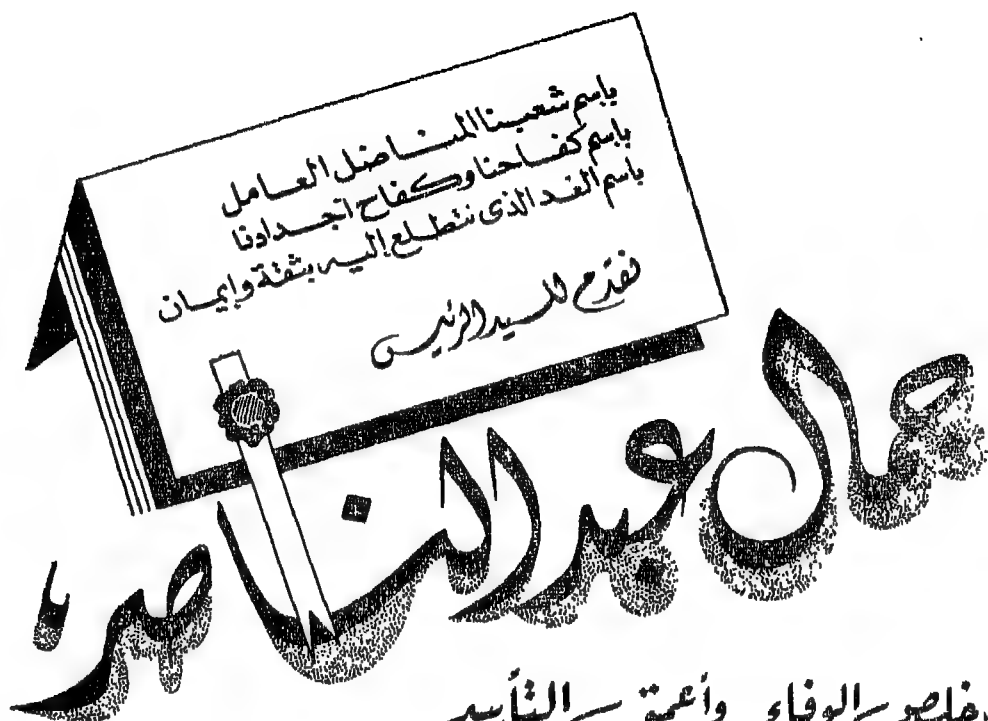 باسم شعبنا المناضل العامل
باسم كفاحنا وكفاح اجدادنا
باسم الغد الذى نتطلع إليه بثقة وإيمان
نقدم للسيد الرئيس
جمال عبد الناصر
الوفاء وأعمق التأييد